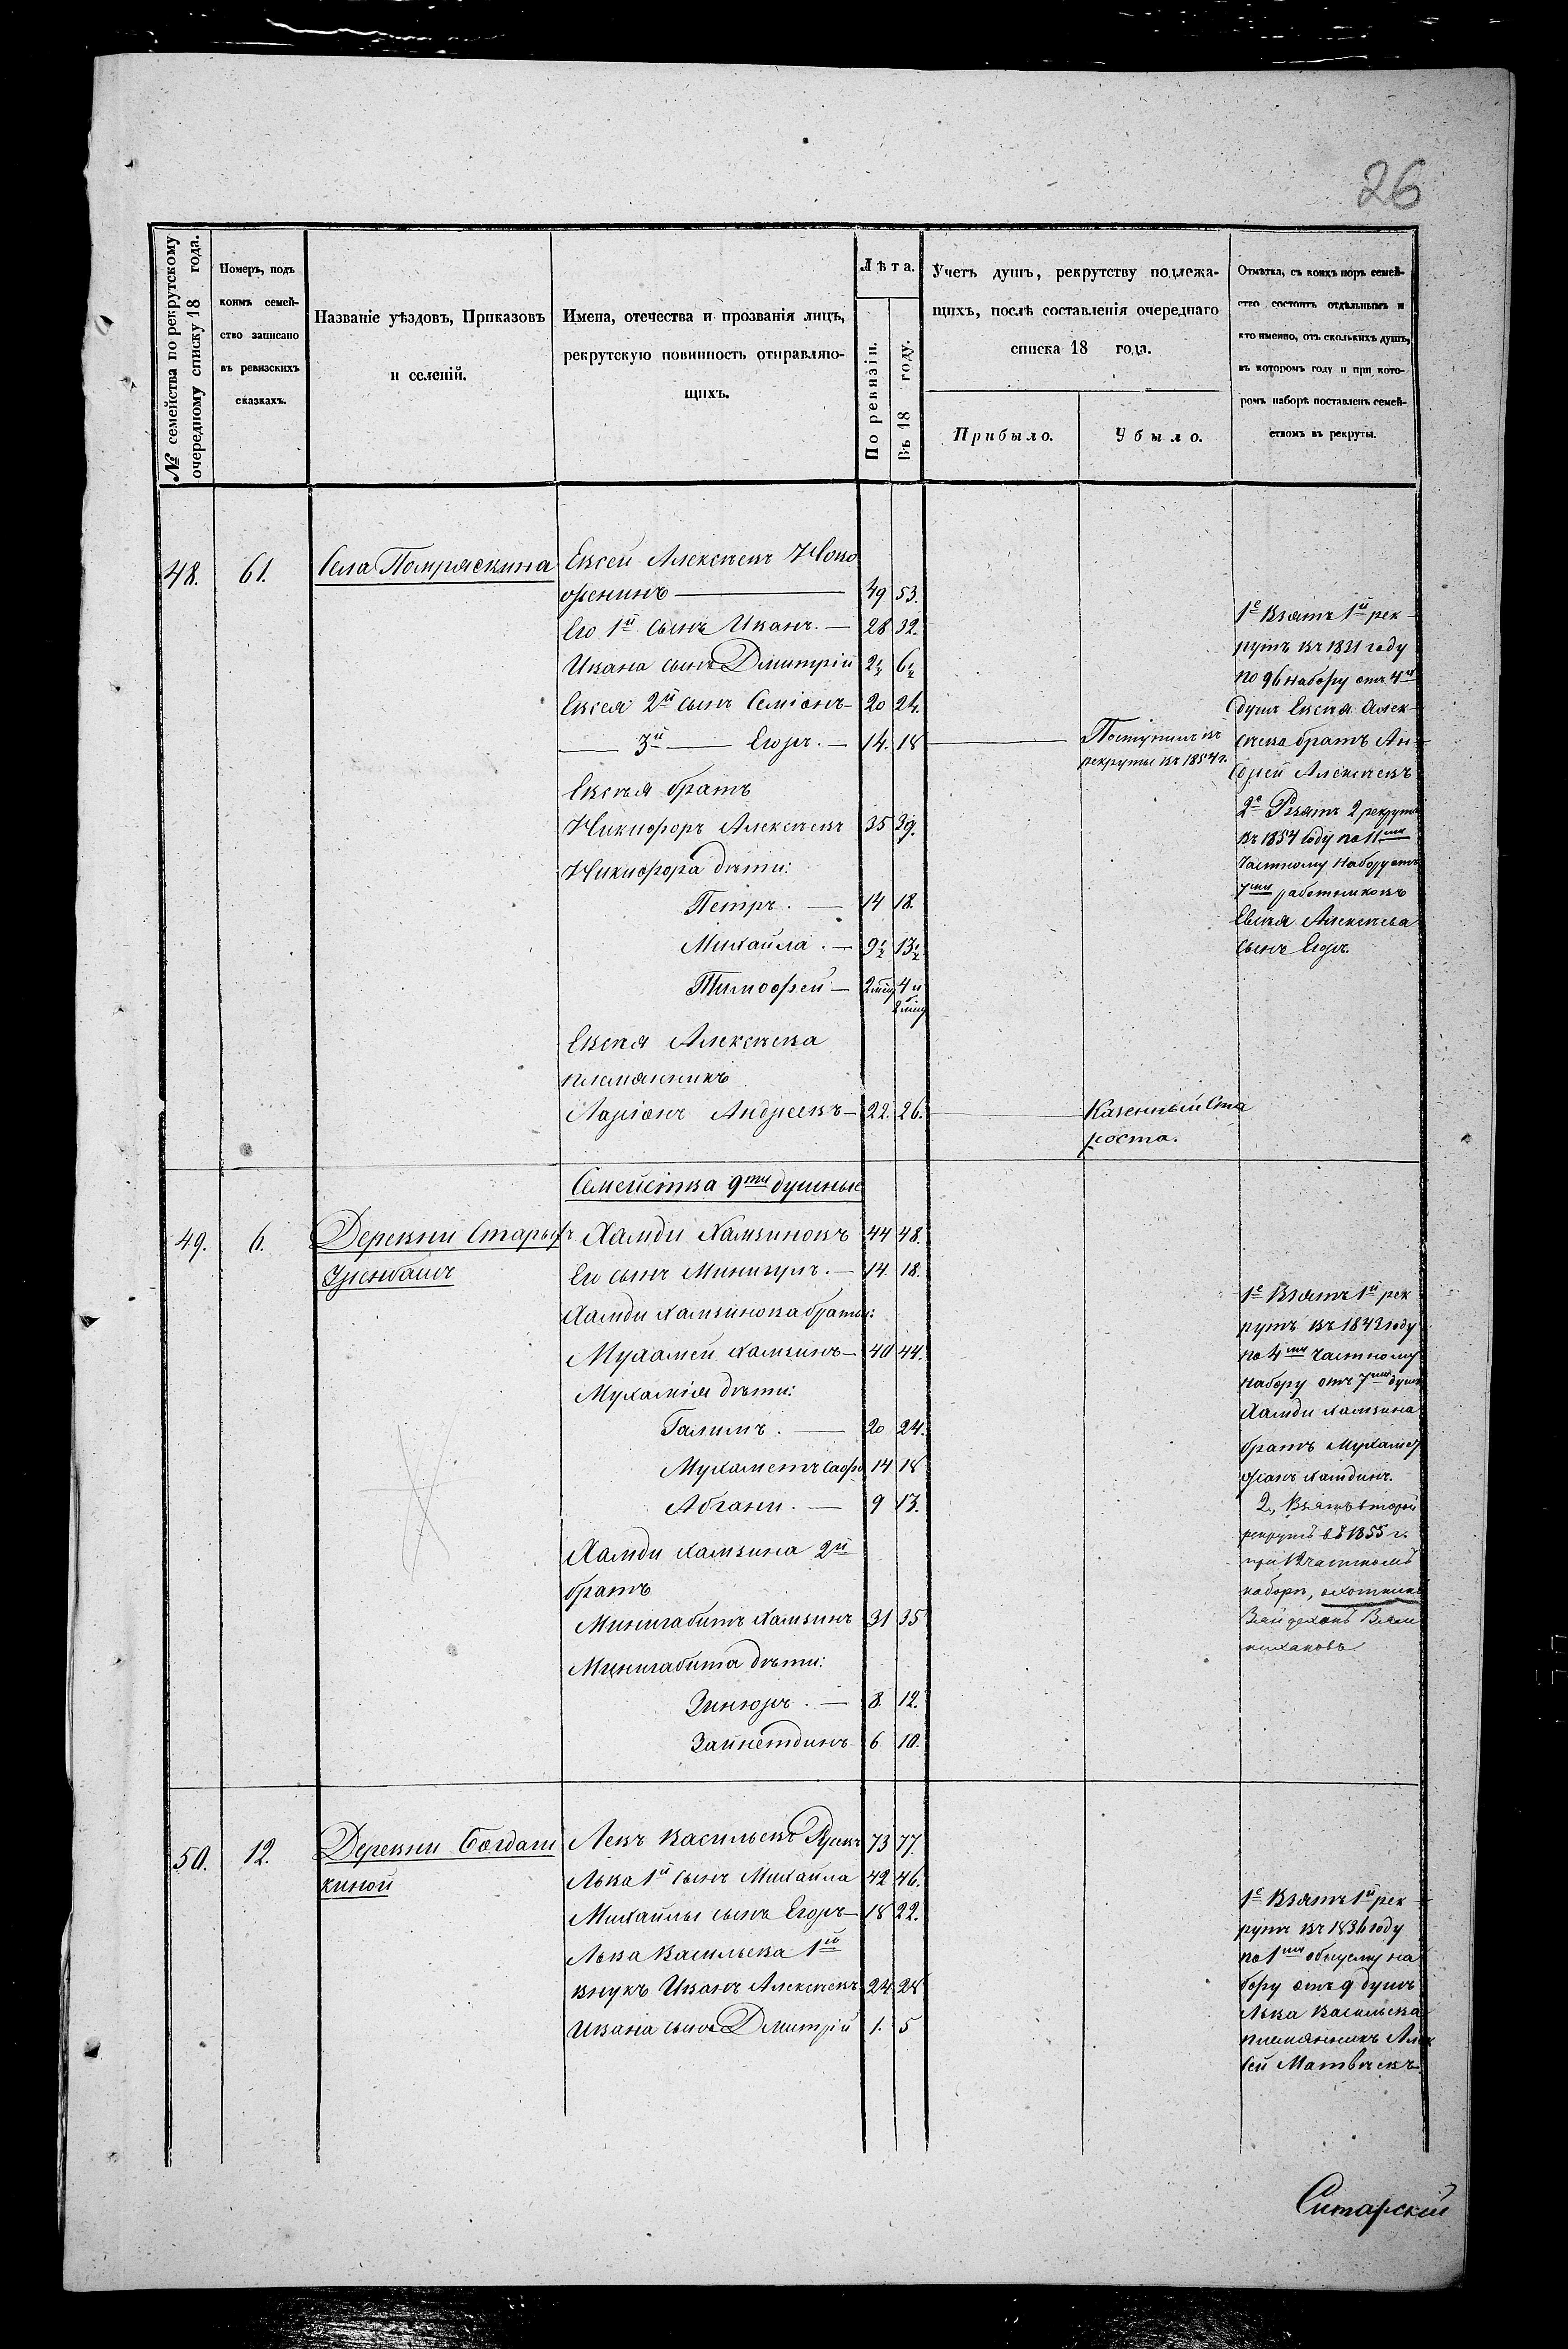 26
№ семейства по рекрутскому
очередному списку 18 года.
Номеръ, подъ
коимъ семей-
ство записано
въ ревизскихъ
сказкахъ.
Названіе уѣздовъ, Приказовъ
и селеній.
Имена, отечества и прозванія лицъ,
рекрутскую повинность отправляю-
щихъ.
Лѣта.
По ревизіи.
Въ 18 году.
Учетъ душъ, рекрутству подлежа-
щихъ, послѣ составленія очереднаго
списка 18 года.
Прибыло.
Убыло.
Отмѣтка, съ коихъ поръ семей-
ство состоитъ отдѣльнымъ и
кто именно, отъ сколькихъ душъ,
въ которомъ году и при кото-
ромъ наборѣ поставленъ семей-
ствомъ въ рекруты.
48. 61. Села Помряскина
Евсей Алексѣевъ Ново
49 53.
Его 1й сынъ Иванъ. — 28 32.
Ивана сынъ Дмитрій 2½ 6½
Евсея 2й сынъ Семіонъ — 20 24.
— 3й — Егоръ. — 14. 18
Поступилъ въ
рекруты въ 1854 г.
Евсѣя братъ
Никифоръ Алексѣевъ 35 39.
Никифора дѣти:
Петръ. — 14 18.
Михайла. — 9½ 13½
Тимофей — 2 мѣц 4 и
2 мѣц
Евсѣя Алексѣева
племянникъ
Ларіонъ Андреевъ — 22. 26.
Казенный Ста
роста.
1е Взятъ 1й рек-
рутъ въ 1831 году
по 96 набору отъ 4хъ
душъ Евсѣя Алек-
сѣева братъ Ан-
дрей Алексѣевъ
2е Взятъ 2 рекрутъ
въ 1854 году по 11му
частному набору отъ
7ми работниковъ
Евсѣя Алексѣева
сынъ Егоръ.
Семейства 9ти душные
49. 6. Деревни Старыхъ
Хамди Хамзиновъ 44 48.
Его сынъ Минигулъ. — 14. 18.
Хамди Хамзинова братья:
Мухамей Хамзинъ — 40 44.
Мухамѣя дѣти:
Галимъ. — 20 24.
Мухаметъ Сафа 14 18
Абгани. — 9 13.
Хамди Хамзина 2й
братъ
Минигабитъ Хамзинъ 31 35
Минигабита дѣти:
Зиннюръ. — 8. 12.
Зайнетдинъ 6 10.
1е Взятъ 1й рек
рутъ въ 1842 году
по 4му частному
набору отъ 7ми душъ
Хамди Хамзина
братъ
2, Взятъ второй
рекрутъ въ 1855 г.
при 12 частномъ
наборѣ, охотникъ
50. 12. Деревни Богдаш
киной
Левъ Васильевъ 73 77.
Льва 1й сынъ Михайла 42 46.
Михайлы сынъ Егоръ — 18 22.
Льва Васильева 1й
внукъ Иванъ Алексѣевъ 24 28
Ивана сынъ Дмитрій 1. 5
1е Взятъ 1й рек
рутъ въ 1836 году
по 1му общему на
бору отъ 9 душъ
Льва Васильева
племянникъ Алек
сей Матвѣевъ.
Ситарскій